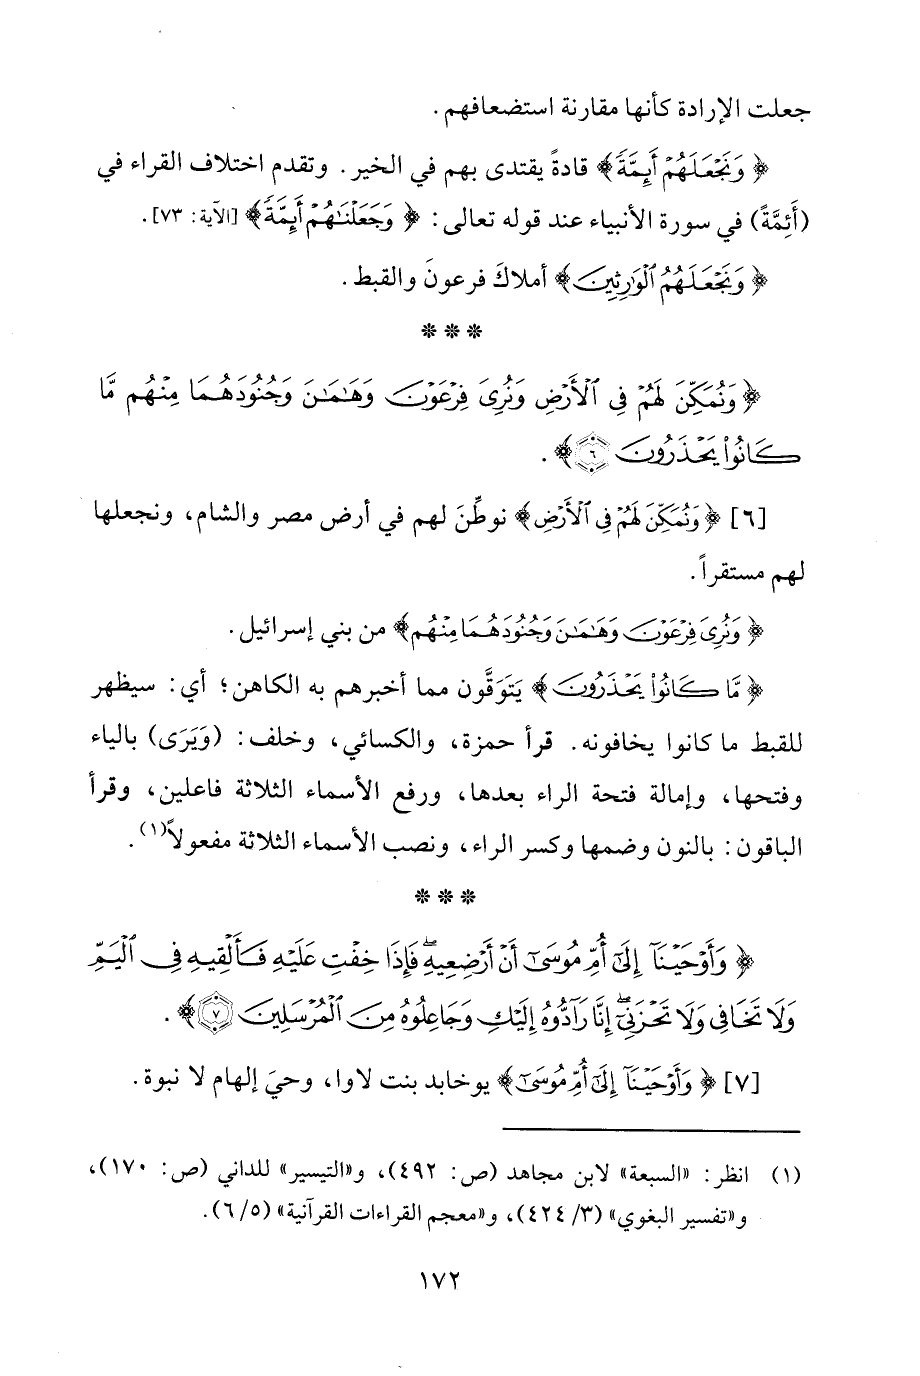 جعلت الإرادة كأنها مقارنة استضعافهم.
﴿وَنَجْعَلَهُمْ أَئِمَّةً﴾ قادةً يقتدى بهم في الخير. وتقدم اختلاف القراء في
(أَئِمَّةً) في سورة الأنبياء عند قوله تعالى: ﴿وَجَعَلْنَاهُمْ أَئِمَّةً﴾ [الآية: ٧٣].
﴿وَنَجْعَلَهُمُ الْوَارِثِينَ﴾ أملاكَ فرعونَ والقبط.
* * *
﴿وَنُمَكِّنَ لَهُمْ فِي الْأَرْضِ وَنُرِيَ فِرْعَوْنَ وَهَامَانَ وَجُنُودَهُمَا مِنْهُم مَّا
كَانُوا يَحْذَرُونَ ٦﴾.
[٦] ﴿وَنُمَكِّنَ لَهُمْ فِي الْأَرْضِ﴾ نوطِّنَ لهم في أرض مصر والشام، ونجعلها
لهم مستقراً.
﴿وَنُرِيَ فِرْعَوْنَ وَهَامَانَ وَجُنُودَهُمَا مِنْهُم﴾ من بني إسرائيل.
﴿مَّا كَانُوا يَحْذَرُونَ﴾ يَتَوَقَّون مما أخبرهم به الكاهن؛ أي: سيظهر
للقبط ما كانوا يخافونه. قرأ حمزة، والكسائي، وخلف: (وَيَرَى) بالياء
وفتحها، وإمالة فتحة الراء بعدها، ورفع الأسماء الثلاثة فاعلين، وقرأ
الباقون: بالنون وضمها وكسر الراء، ونصب الأسماء الثلاثة مفعولاً(١).
* * *
﴿وَأَوْحَيْنَا إِلَىٰ أُمِّ مُوسَىٰ أَنْ أَرْضِعِيهِ ۖ فَإِذَا خِفْتِ عَلَيْهِ فَأَلْقِيهِ فِي الْيَمِّ
وَلَا تَخَافِي وَلَا تَحْزَنِي ۖ إِنَّا رَادُّوهُ إِلَيْكِ وَجَاعِلُوهُ مِنَ الْمُرْسَلِينَ ٧﴾.
[٧] ﴿وَأَوْحَيْنَا إِلَىٰ أُمِّ مُوسَىٰ﴾ يوخابد بنت لاوا، وحيَ إلهام لا نبوة.
(١) انظر: «السبعة» لابن مجاهد (ص: ٤٩٢)، و«التيسير» للداني (ص: ١٧٠)،
و«تفسير البغوي» (٣/ ٤٢٤)، و«معجم القراءات القرآنية» (٥/ ٦).
١٧٢